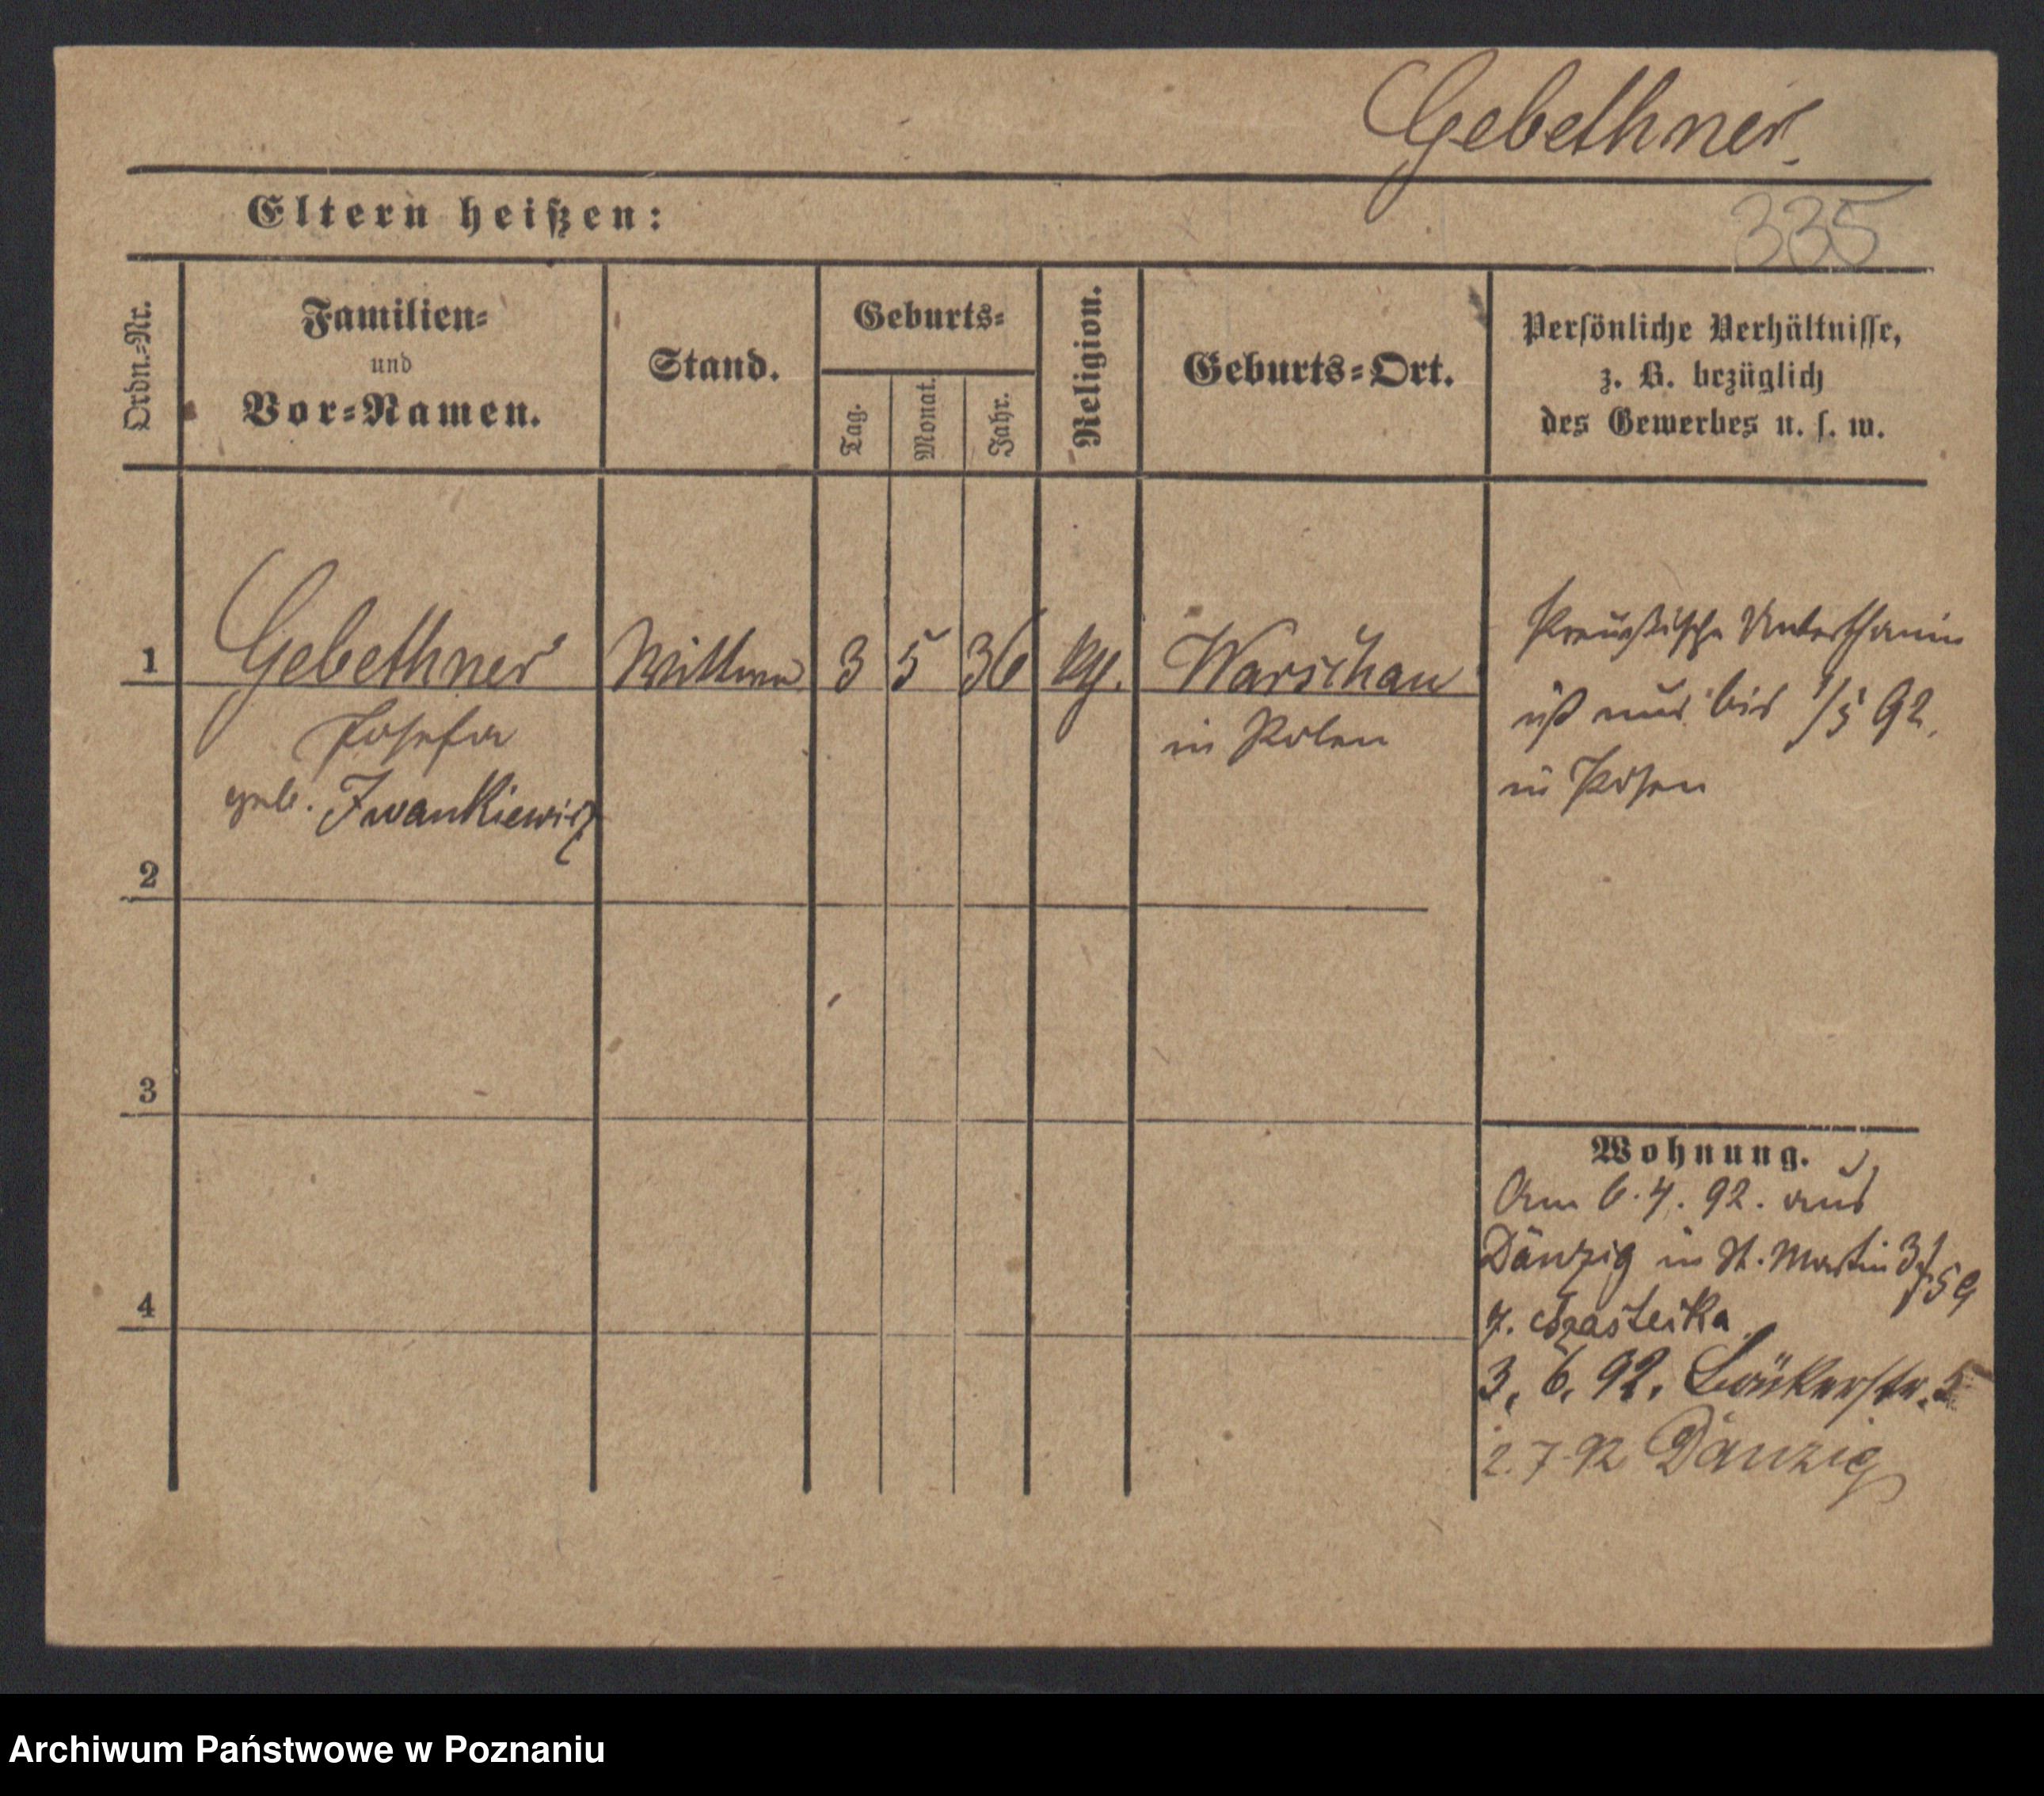 Gebethner.
335
Eltern heißen:
Ordn.=Nr.
Familien=
und
Vor=Namen.
Stand.
Geburts=
Tag.
Monat.
Jahr.
Religion.
Geburts=Ort.
Persönliche Verhältnisse,
z. B. bezüglich
des Gewerbes u. s. w.
1
Gebethner
Wittwe
3
5
36
Warschau
Preußische Unterthanin
Josefa
in Polen
ist nur bis 1/5 92.
geb. Iwankiewicz
in Posen
2
3
Wohnung.
Am 6. 4. 92. aus
Danzig in St. Martin 59
4
3. 6. 92. Bäckerstr. 5
2. 7. 92 Danzig
Archiwum Państwowe w Poznaniu